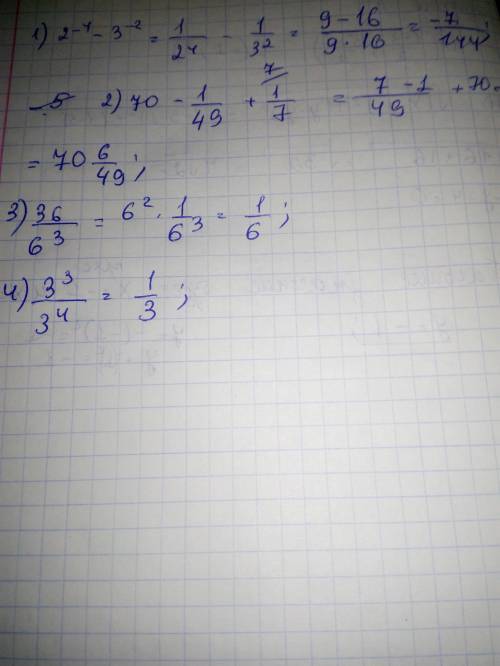 1) 2⁻⁴ - 3⁻² = 1/2⁴ - 1/3² = (9-16)/(9·16) = -7/144;
2) 70 - 1/49 + 1/7 ⁷⁄ = (7-1)/49 + 70 =
= 70 6/49;
3) 36/6³ = 6² · 1/6³ = 1/6;
4) 3³/3⁴ = 1/3;